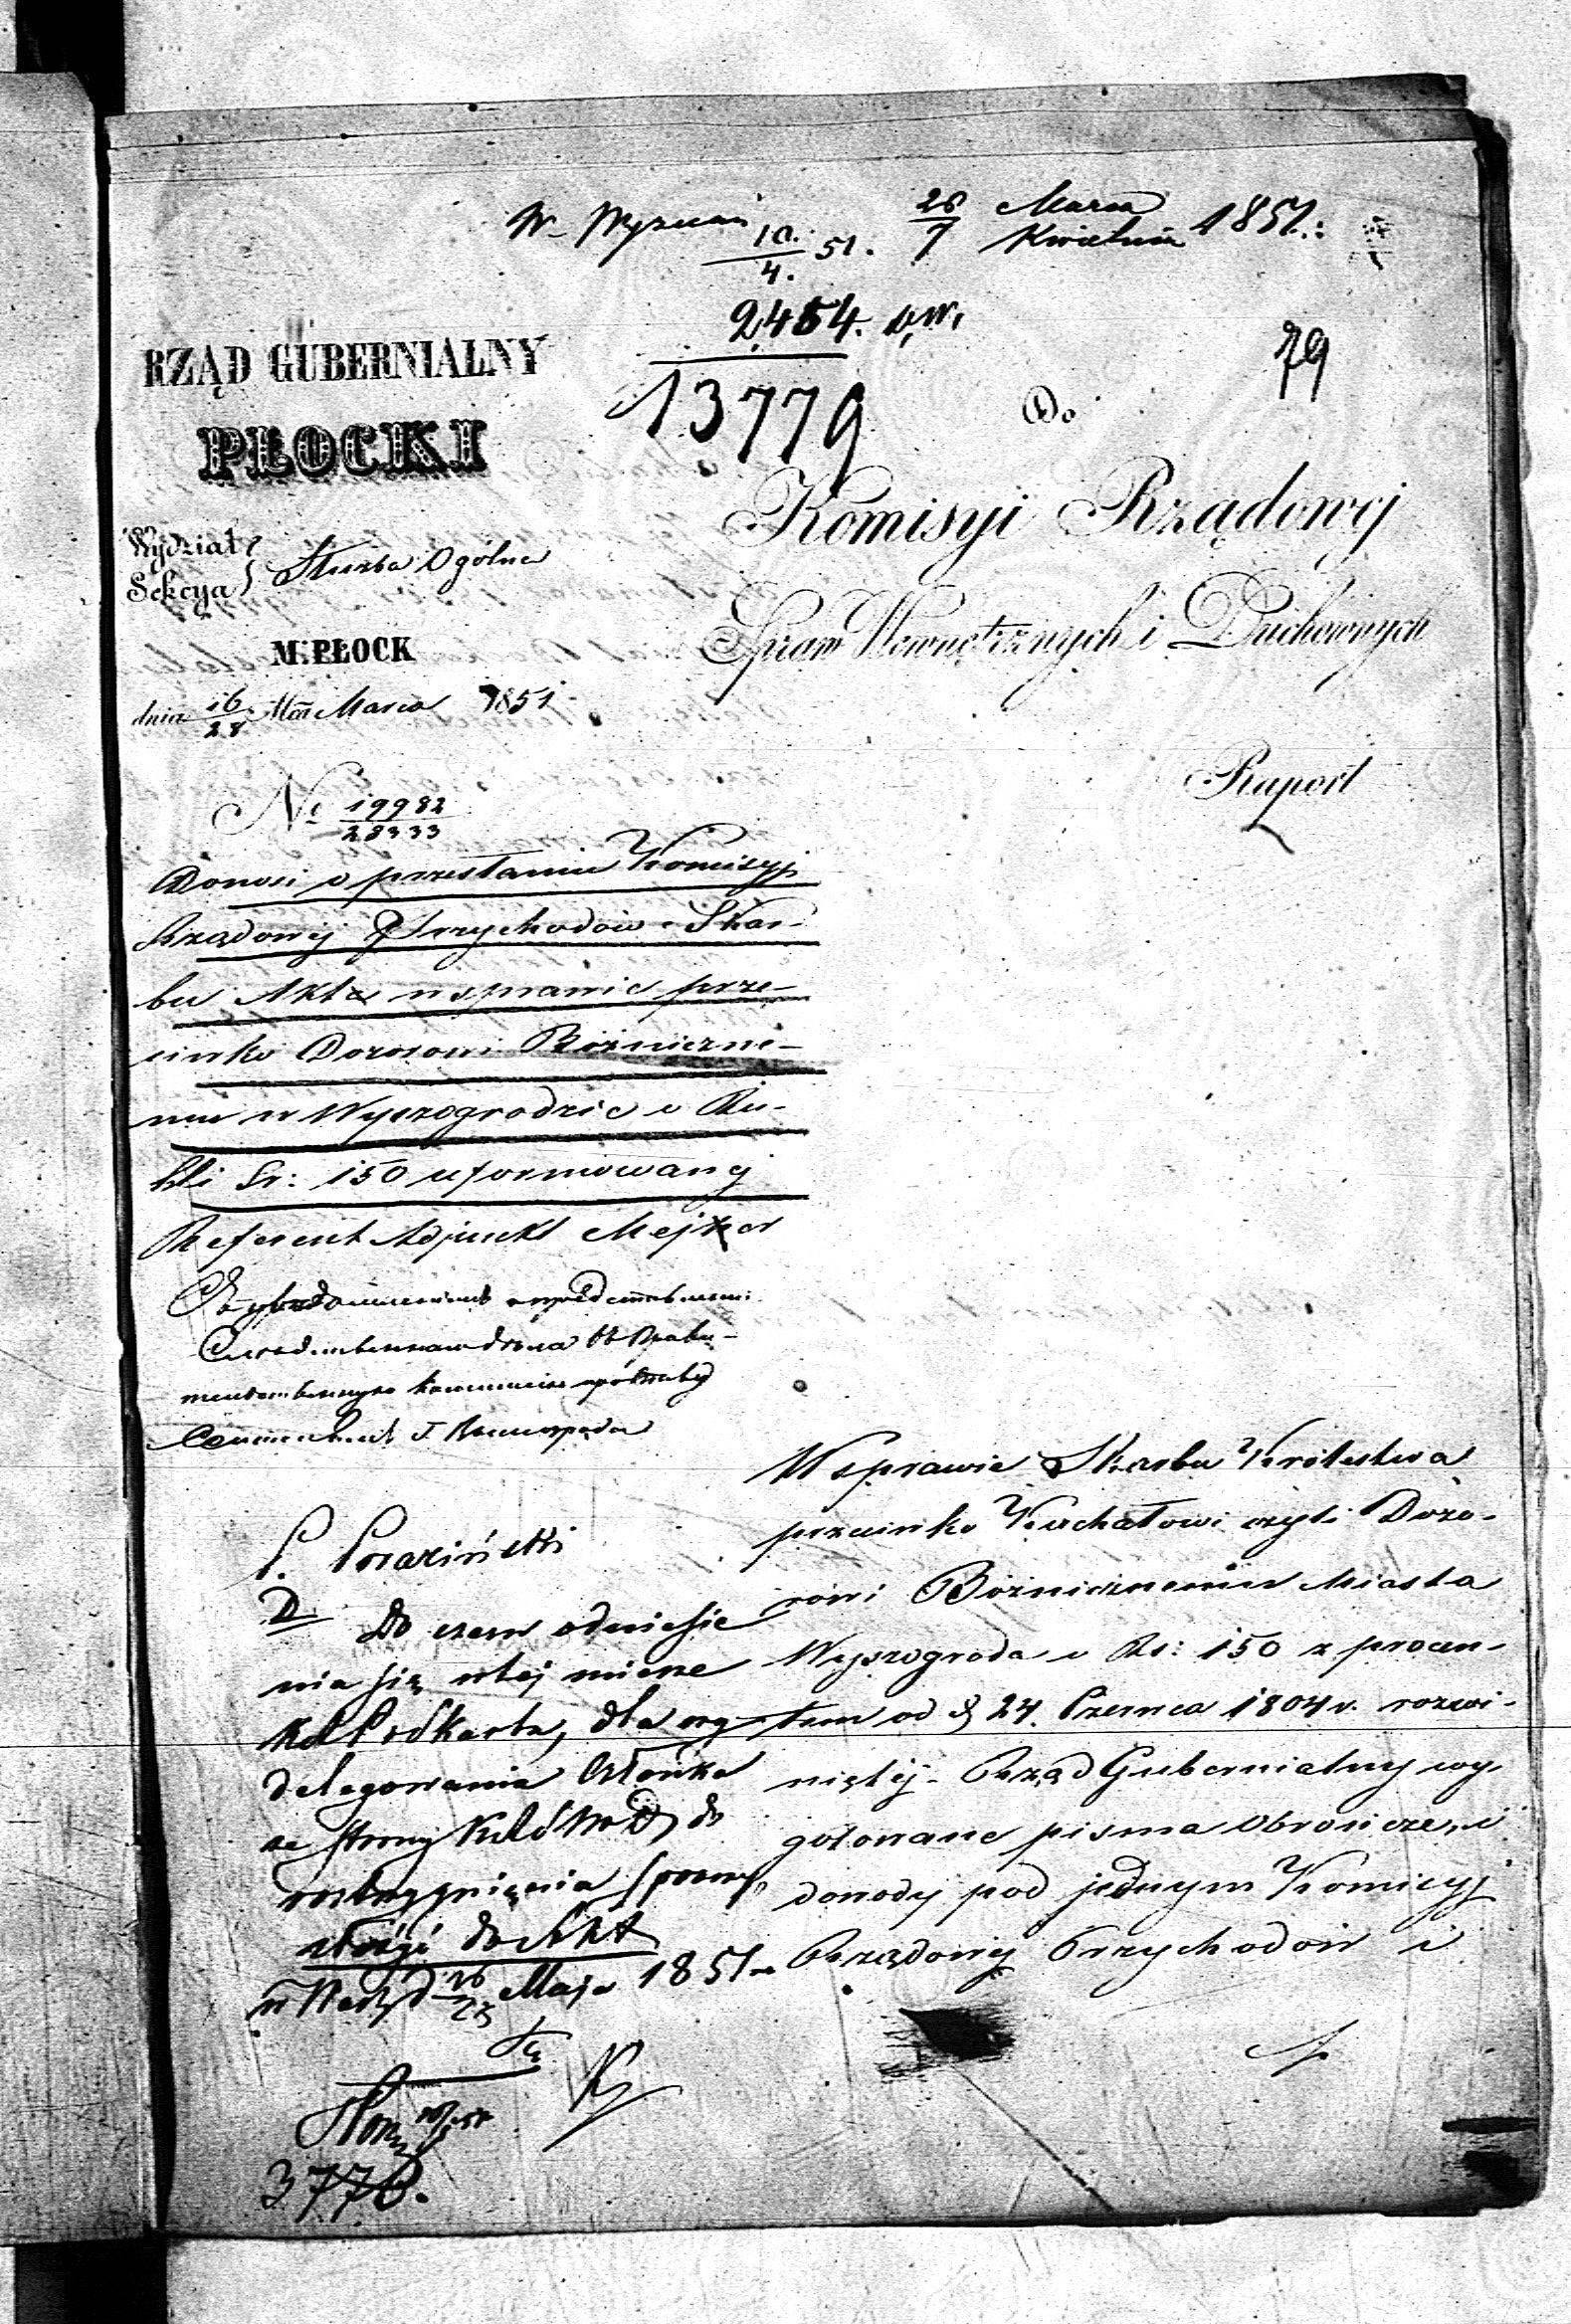 26 Marca
7 Kwietnia 1851.
10.
4. 51.
2,454.
13779
79
RZĄD GUBERNIALNY
PŁOCKI
Wydział
Sekcya
Służba Ogólna
M. PŁOCK
dnia 16/28 Marca 1851
No 19982
28333
Do
Komisyi Rządowej
Spraw Wewnętrznych i Duchownych
Raport
Donosi o przesłaniu Komisyi
Rządowej Przychodów i Skar-
bu Akta w sprawie prze-
ciwko Dozorowi Bóżniczne-
mu w Wyszogrodzie o Ru-
bli Sr: 150 uformowanej
Referent Adjunkt
W sprawie Skarbu Królestwa
przeciwko Kachałowi czyli Dozo-
rowi Bóżnicznemu Miasta
Wyszogroda o Rs: 150 z procen-
tem od d 24. Czerwca 1804 r. rozwi-
niętej Rząd Gubernialny wy-
gotowane pisma obronicze, i
dowody pod jednym Komisyi
Rządowej Przychodów i
D.
Po czem odniesie
nia się w tej mierze
do wy-
delegowania Członka
ze strony do
rozstrzygnięcia sporu,
złożyć do Akt
Maja 1851
3776.